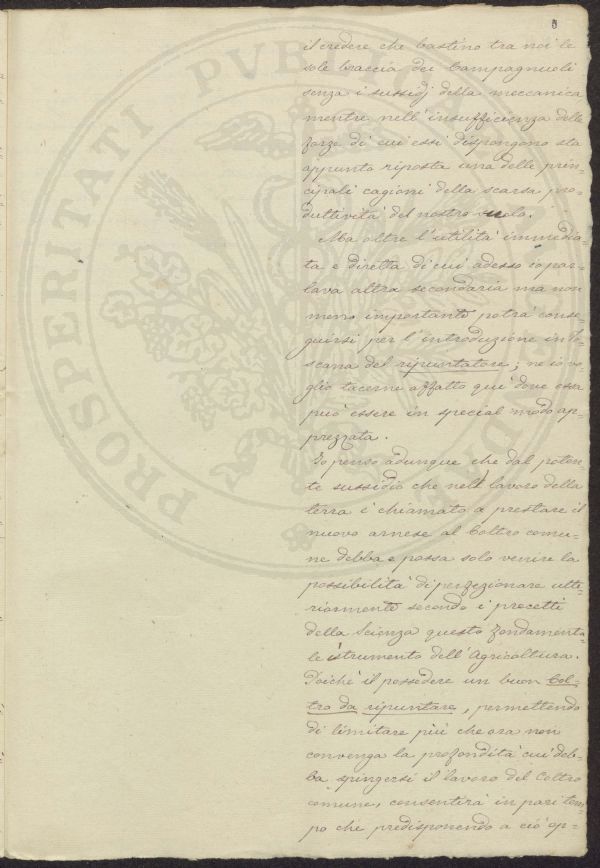 il credere che bastino tra noi le
sole braccia dei Campagnuoli
senza i sussidj della meccanica
mentre nell'insufficienza delle
forze di cui essi dispongono sta
appunto riposta una delle prin=
cipali cagioni della scarsa pro=
duttività del nostro suolo.
Ma oltre l'utilità immedia=
ta e diretta di cui adesso io par=
lava altra secondaria ma non
meno importante potrà conse=
guirsi per l'introduzione in To=
scana del ripuntatore; ne io vo=
glio tacerne affatto qui dove essa
può essere in special modo ap=
prezzata.
Io penso adunque che dal poten=
te sussidio che nell lavoro della
terra è chiamato a prestare il
nuovo arnese al Coltro comu=
ne debba e possa solo venire la
possibilità di perfezionare ulte=
riormente secondo i precetti
della Scienza questo fondamenta=
le istrumento dell'Agricoltura.
Poichè il possedere un buon Col=
tro da ripuntare, permettendo
di limitare più che ora non
convenga la profondità cui deb=
ba spingersi il lavoro del Coltro
comune, consentirà in pari tem=
po che predisponendo a ciò op=
PROSPERITATI PVB